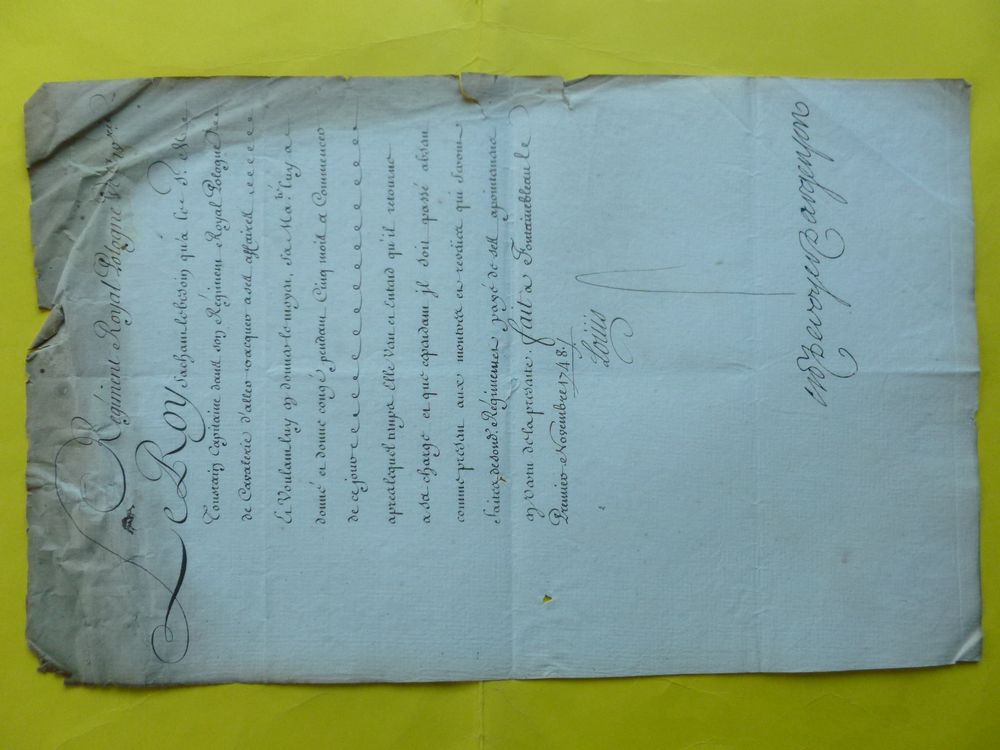 Régiment Royal Pologne
LE ROY sachant le besoin qu'a le S.r
Toustain Capitaine dans son Régiment Royal Pologne
de Cavalerie d'aller vacquer a ses affaires
Et Voulant luy en donner le moyen, Sa Ma.té luy a
donné et donne congé pendant Cinq mois a Commencer
de ce jour
apres lequel temps Elle veut et entend qu'il retourne
a sa charge et que cependant il soit passé absent
comme présent aux montres et reveües qui seront
faites de sond. Régiment et payé de ses apointemens
en vertu de la présente. fait a Fontainebleau le
Premier Novembre 1748.
Louis
M P de voyer D argenson